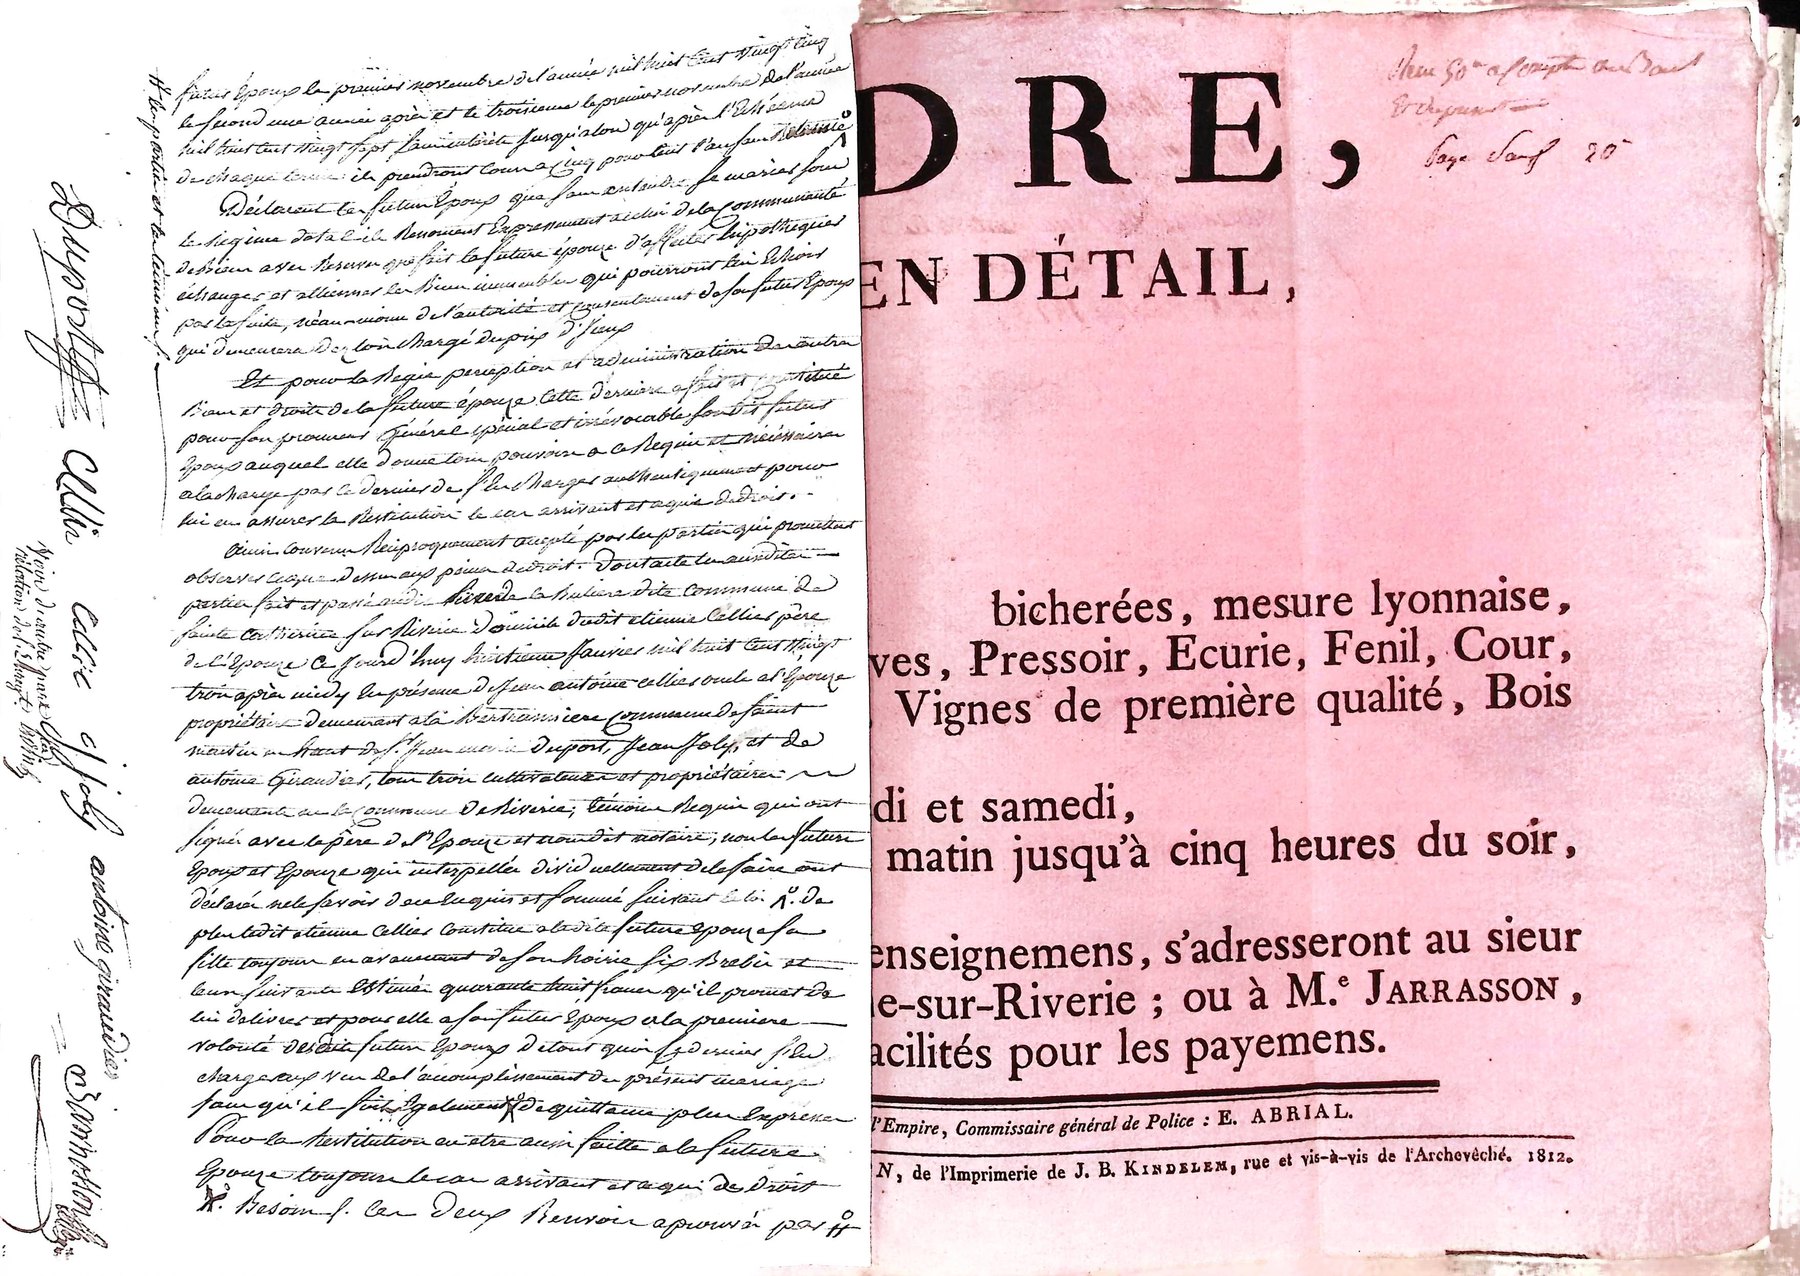 futurs Epoux le premier novembre de l'année mil huit cent vingt cinq
le second une année après et le troisieme le premier novembre de l'année
mil huit cent vingt sept sans intérêts jusqu'alors qu'après l'Echéance
de chaque terme ils prendront cours a cinq pour cent l'an sans Retenue
Déclarent les futurs Epoux que sans entendre se marier sous
le Régime dotal ils Renoncent Expressement a celui de la Communauté
de biens avec Réserve que fait la future épouze d'affecter hipothequer
échanger et alliénner les Biens immeubles qui pourront lui Echoir
par la suite, néan-moins de l'autorité et consentement de son futur Epoux
qui demeurera dez lors chargé du prix d'Iceux
Et pour la Régie perception et administration des autres
Biens et droits de la future épouze, cette derniere a fait et constitué
pour son procureur Général spécial et irrévocable sondit futur
Epoux auquel elle donne tous pouvoirs a ce Requis et nécéssaires
a la charge par ce dernier de s'En charger authentiquement pour
lui en assurer la Restitution le cas arrivant et a qui de droit.
Ainsi convenu Réciproquement accepté par les parties qui promettent
observer ce que dessus aux peines de droit. Dont acte les susdites
parties fait et passé audit lieu de la commune de
Sainte Catherine sur Riverie Domicile dudit etienne Cellier père
de l'Epouze Ce Jourd'huy huitieme Janvier mil huit cent vingt
trois après midy En présence de Jean antoine cellier oncle a l'Epouze
propriétaire demeurant a la Bertranniere commune de Saint
martin en haut de S.r Jean marie Duport, Jean Joly, et de
antoine Giraudier, tous trois cultivateurs et propriétaires
demeurants en la Commune de Riverie, témoins Requis qui ont
signé avec le père de l'Epouze et nous dit notaire, non les future
Epoux et Epouze qui interpellés dividuellement de le faire ont
déclaré ne le savoir de ce Enquis et sommé suivant la loi. de
plus ledit etienne Cellier constitue a ladite future Epouze sa
fille toujours en avancement de son hoirie six Brebis et
leurs suivants Estimés quarante huit francs qu'il promet de
lui délivrer et pour elle a son futur Epoux a la premiere
volonté desdits futurs Epoux de tout quoi ce dernier s'En
charge aux vues de l'acomplissement du présent mariage
sans qu'il soit Egalement de quittance plus Expresse
Pour la Restitution en etre aussi faitte a la future
Epouze toujours le cas arrivant et a qui de droit
Besoin f. Les deux Renvois aprouvés par
les parties et les témoins f.
Duport Cellier Cellie j joly antoine giraudier
DRE,
EN DÉTAIL,
Page Sauf 20
bicherées, mesure lyonnaise,
ves, Pressoir, Ecurie, Fenil, Cour,
, Vignes de première qualité, Bois
di et samedi,
matin jusqu'à cinq heures du soir,
enseignemens, s'adresseront au sieur
e-sur-Riverie ; ou à M.e JARRASSON,
acilités pour les payemens.
l'Empire, Commissaire général de Police : E. ABRIAL.
N, de l'Imprimerie de J. B. KINDELEM, rue et vis-à-vis de l'Archevêché. 1812.